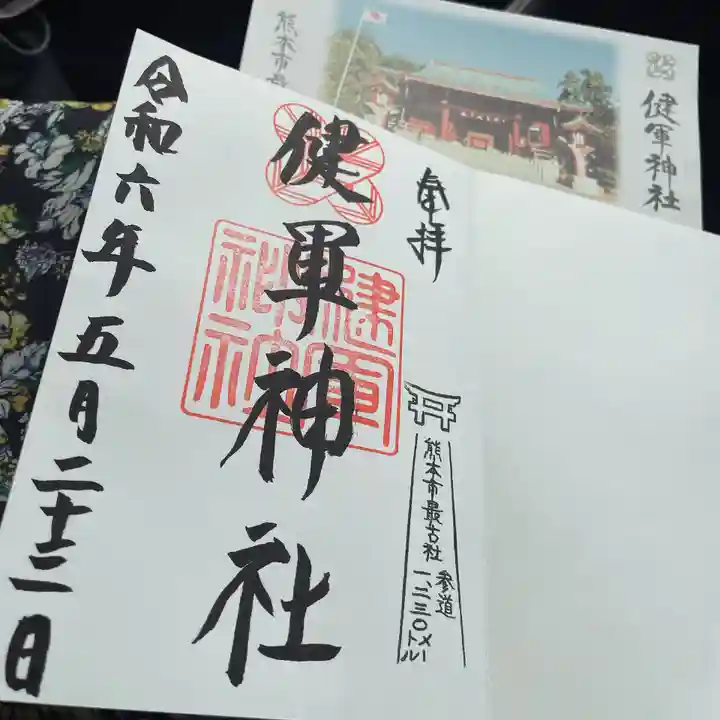 奉拝
健軍神社
令和六年五月二十三日
熊本市最古社
参道
一、二三〇メートル
健軍神社
熊本市最
健軍神社